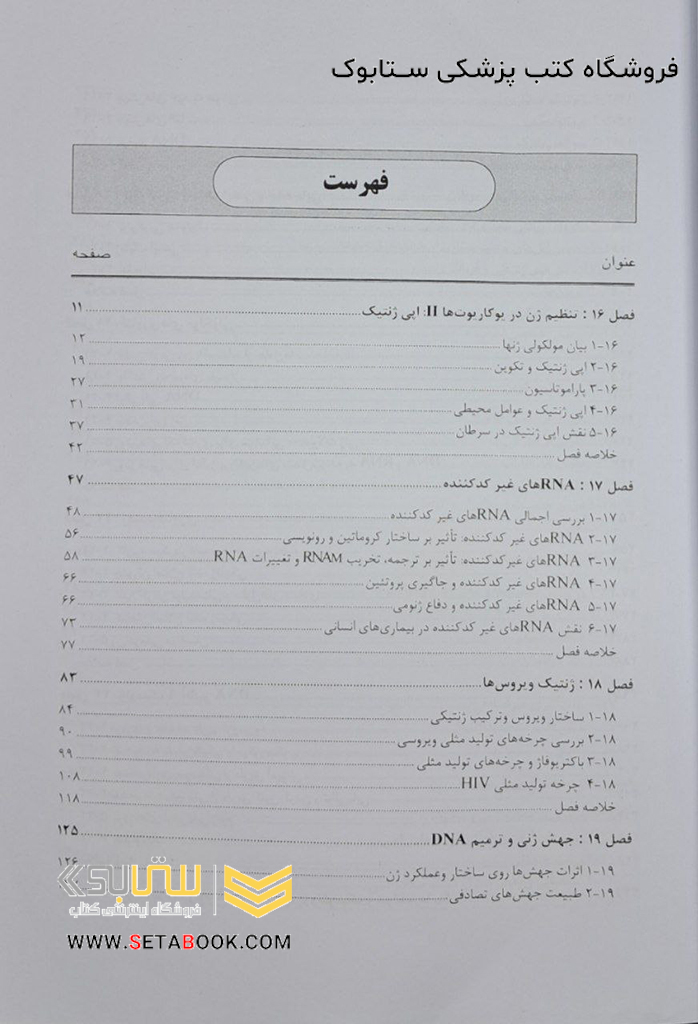 فروشگاه کتب پزشکی ستابوک
فهرست
عنوان صفحه
فصل ۱۶ : تنظیم ژن در یوکاریوت‌ها II: اپی ژنتیک ۱۱
۱-۱۶ بیان مولکولی ژنها ۱۲
۲-۱۶ اپی ژنتیک و تکوین ۱۹
۳-۱۶ پاراموتاسیون ۲۷
۴-۱۶ اپی ژنتیک و عوامل محیطی ۳۱
۵-۱۶ نقش اپی ژنتیک در سرطان ۳۷
خلاصه فصل ۴۲
فصل ۱۷ : RNAهای غیر کدکننده ۴۷
۱-۱۷ بررسی اجمالی RNAهای غیر کدکننده ۴۸
۲-۱۷ RNAهای غیر کدکننده: تأثیر بر ساختار کروماتین و رونویسی ۵۶
۳-۱۷ RNAهای غیرکدکننده: تأثیر بر ترجمه، تخریب RNAM و تغییرات RNA ۵۸
۴-۱۷ RNAهای غیر کدکننده و جاگیری پروتئین ۶۶
۵-۱۷ RNAهای غیر کدکننده و دفاع ژنومی ۶۶
۶-۱۷ نقش RNAهای غیر کدکننده در بیماری‌های انسانی ۷۳
خلاصه فصل ۷۷
فصل ۱۸ : ژنتیک ویروس‌ها ۸۳
۱-۱۸ ساختار ویروس وترکیب ژنتیکی ۸۴
۲-۱۸ بررسی چرخه‌های تولید مثلی ویروسی ۹۰
۳-۱۸ باکتریوفاژ و چرخه‌های تولید مثلی ۹۹
۴-۱۸ چرخه تولید مثلی HIV ۱۰۸
خلاصه فصل ۱۱۸
فصل ۱۹ : جهش ژنی و ترمیم DNA ۱۲۵
۱-۱۹ اثرات جهش‌ها روی ساختار وعملکرد ژن ۱۲۶
۲-۱۹ طبیعت جهش‌های تصادفی
ستابوک
فروشگاه اینترنتی کتاب
WWW.SETABOOK.COM